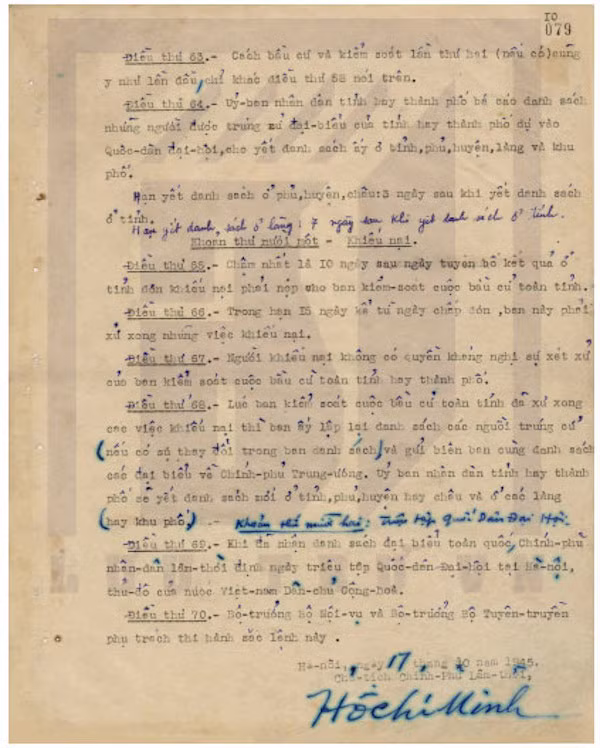 10
079
Điều thứ 63.- Cách bầu cử và kiểm soát lần thứ hai (nếu có)cũng
y như lần đầu, chỉ khác điều thứ 58 nói trên.
Điều thứ 64.- Uỷ-ban nhân dân tỉnh hay thành phố bá cáo danh sách
những người được trúng cử đại-biểu của tỉnh hay thành phố dự vào
Quốc-dân đại-hội,cho yết danh sách ấy ở tỉnh,phủ,huyện,làng và khu
phố.
Hạn yết danh sách ở phủ,huyện,châu:3 ngày sau khi yết danh sách
ở tỉnh.
Hạn yết danh sách ở làng: 7 ngày sau khi yết danh sách ở tỉnh.
Khoản thứ mười một - Khiếu nại.
Điều thứ 65.- Chậm nhất là I0 ngày sau ngày tuyên bố kết quả ở
tỉnh đơn khiếu nại phải nộp cho ban kiểm-soát cuộc bầu cử toàn tỉnh.
Điều thứ 66.- Trong hạn I5 ngày kể từ ngày chấp đơn ,ban này phải
xử xong những việc khiếu nại.
Điều thứ 67.- Người khiếu nại không có quyền kháng nghị sự xét xử
của ban kiểm soát cuộc bầu cử toàn tỉnh hay thành phố.
Điều thứ 68.- Lúc ban kiểm soát cuộc bầu cử toàn tỉnh đã xử xong
các việc khiếu nại thì ban ấy lập lại danh sách các người trúng cử
(nếu có sự thay đổi trong ban danh sách)và gửi biên bản cùng danh sách
các đại biểu về Chính-phủ Trung-ương. Uỷ ban nhân dân tỉnh hay thành
phố sẽ yết danh sách mới ở tỉnh,phủ,huyện hay châu và ở các làng
(hay khu phố) .- Khoản thứ mười hai: triệu tập Quốc Dân Đại Hội.
Điều thứ 69.- Khi đã nhận danh sách đại biểu toàn quốc, Chính-phủ
nhân-dân lâm-thời định ngày triệu tập Quốc-dân Đại-hội tại Hà-nội,
thủ-đô của nước Việt-nam Dân-chủ Cộng-hoà.
Điều thứ 70.- Bộ-trưởng Bộ Nội-vụ và Bộ-trưởng Bộ Tuyên-truyền
phụ trách thi hành sắc lệnh này .
Hà-nội, ngày 17 tháng 10 năm 1945.
Chủ-tịch Chính-Phủ Lâm-thời,
Hồ Chí Minh